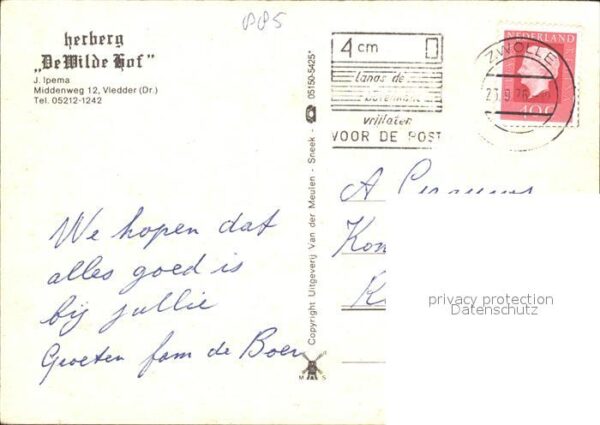 885
herberg
„De Wilde Hof"
J. Ipema
Middenweg 12, Vledder (Dr.)
Tel. 05212-1242
We hopen dat
alles goed is
bij jullie
Groeten fam de Boer
Copyright Uitgeverij Van der Meulen - Sneek - 05150-5425*
M S
4 cm
langs de
bovenkant
vrijlaten
VOOR DE POST
ZWOLLE
NEDERLAND
40c
A
Kon
K
privacy protection
Datenschutz